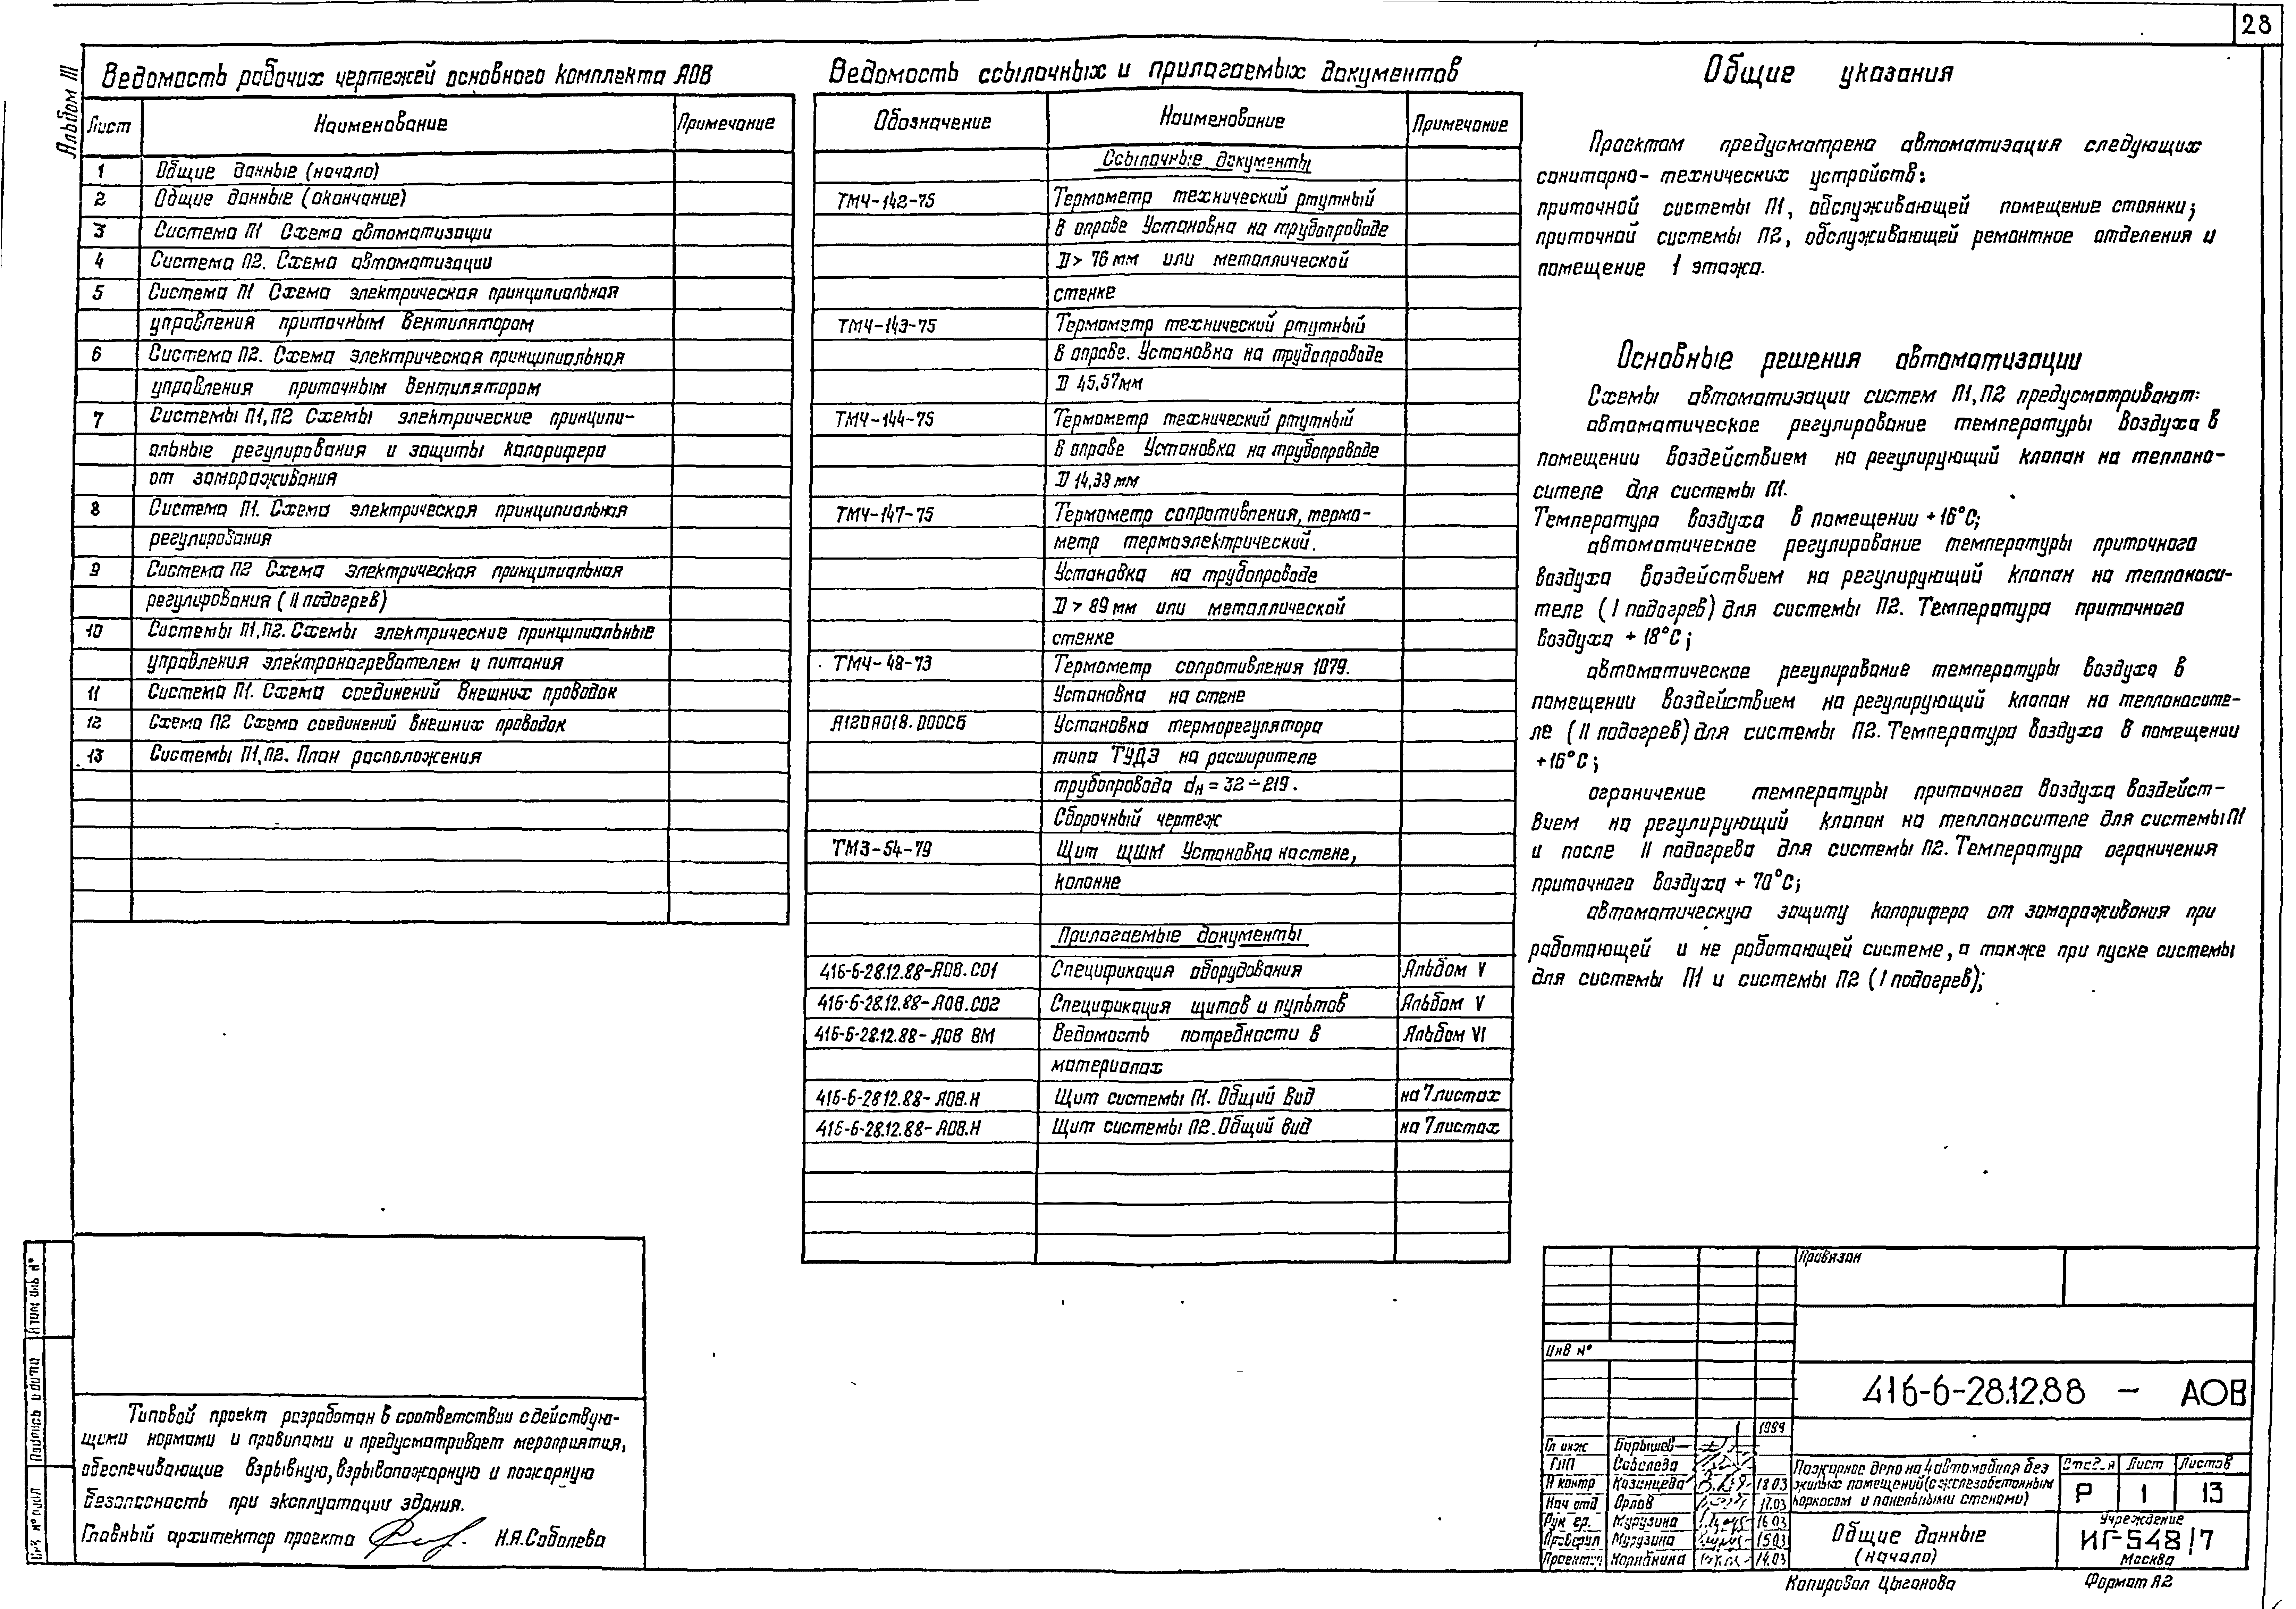 28
Альбом III
Ведомость рабочих чертежей основного комплекта АОВ
Лист Наименование Примечание
1 Общие данные (начало)
2 Общие данные (окончание)
3 Система П1 Схема автоматизации
4 Система П2. Схема автоматизации
5 Система П1 Схема электрическая принципиальная
управления приточным вентилятором
6 Система П2. Схема электрическая принципиальная
управления приточным вентилятором
7 Системы П1,П2 Схемы электрические принципи-
альные регулирования и защиты калорифера
от замораживания
8 Система П1. Схема электрическая принципиальная
регулирования
9 Система П2 Схема электрическая принципиальная
регулирования (II подогрев)
10 Системы П1,П2. Схемы электрические принципиальные
управления электронагревателем и питания
11 Система П1. Схема соединений внешних проводок
12 Схема П2 Схема соединений внешних проводок
13 Системы П1,П2. План расположения
Ведомость ссылочных и прилагаемых документов
Обозначение Наименование Примечание
Ссылочные документы
ТМ4-142-75 Термометр технический ртутный
в оправе Установка на трубопроводе
D > 76 мм или металлической
стенке
ТМ4-143-75 Термометр технический ртутный
в оправе. Установка на трубопроводе
D 45,57мм
ТМ4-144-75 Термометр технический ртутный
в оправе Установка на трубопроводе
D 14,38 мм
ТМ4-147-75 Термометр сопротивления, термо-
метр термоэлектрический.
Установка на трубопроводе
D > 89 мм или металлической
стенке
ТМ4-48-73 Термометр сопротивления 1079.
Установка на стене
А120А018.000СБ Установка терморегулятора
типа ТУДЭ на расширителе
трубопровода dн = 32 ÷ 219.
Сборочный чертеж
ТМ3-54-79 Щит ЩШМ Установка на стене,
колонне
Прилагаемые документы
416-6-28.12.88-АОВ.СО1 Спецификация оборудования Альбом V
416-6-28.12.88-АОВ.СО2 Спецификация щитов и пультов Альбом V
416-6-28.12.88-АОВ ВМ Ведомость потребности в Альбом VI
материалах
416-6-2812.88-АОВ.Н Щит системы П1. Общий вид на 7 листах
416-6-28.12.88-АОВ.Н Щит системы П2. Общий вид на 7 листах
Общие указания
Проектом предусмотрена автоматизация следующих
санитарно-технических устройств:
приточной системы П1, обслуживающей помещение стоянки;
приточной системы П2, обслуживающей ремонтное отделения и
помещение 1 этажа.
Основные решения автоматизации
Схемы автоматизации систем П1,П2 предусматривают:
автоматическое регулирование температуры воздуха в
помещении воздействием на регулирующий клапан на теплоно-
сителе для системы П1.
Температура воздуха в помещении +16°С;
автоматическое регулирование температуры приточного
воздуха воздействием на регулирующий клапан на теплоноси-
теле (I подогрев) для системы П2. Температура приточного
воздуха +18°С;
автоматическое регулирование температуры воздуха в
помещении воздействием на регулирующий клапан на теплоносите-
ле (II подогрев) для системы П2. Температура воздуха в помещении
+16°С;
ограничение температуры приточного воздуха воздейст-
вием на регулирующий клапан на теплоносителе для системы П1
и после II подогрева для системы П2. Температура ограничения
приточного воздуха + 70°С;
автоматическую защиту калорифера от замораживания при
работающей и не работающей системе, а также при пуске системы
для системы П1 и системы П2 (I подогрев);
Типовой проект разработан в соответствии с действую-
щими нормами и правилами и предусматривает мероприятия,
обеспечивающие взрывную, взрывопожарную и пожарную
безопасность при эксплуатации здания.
Главный архитектор проекта Н.А.Соболева
Взам инв №
Подпись и дата
Инв № подл
Привязан
Инв №
416-6-28.12.88 - АОВ
Гл инж Барышев
ГАП Соболева
Н контр Казанцева 18 03
Нач отд Орлов 17.03
Рук гр. Мурузина 16 03
Проверил Мурузина 15 03
Проектир Корнбнина 14.03
Пожарное депо на 4 автомобиля без
жилых помещений (с железобетонным
каркасом и панельными стенами)
Стадия Лист Листов
Р 1 13
Общие данные
(начало)
Учреждение
ИГ-548/7
Москва
Копировал Цыганова Формат А2